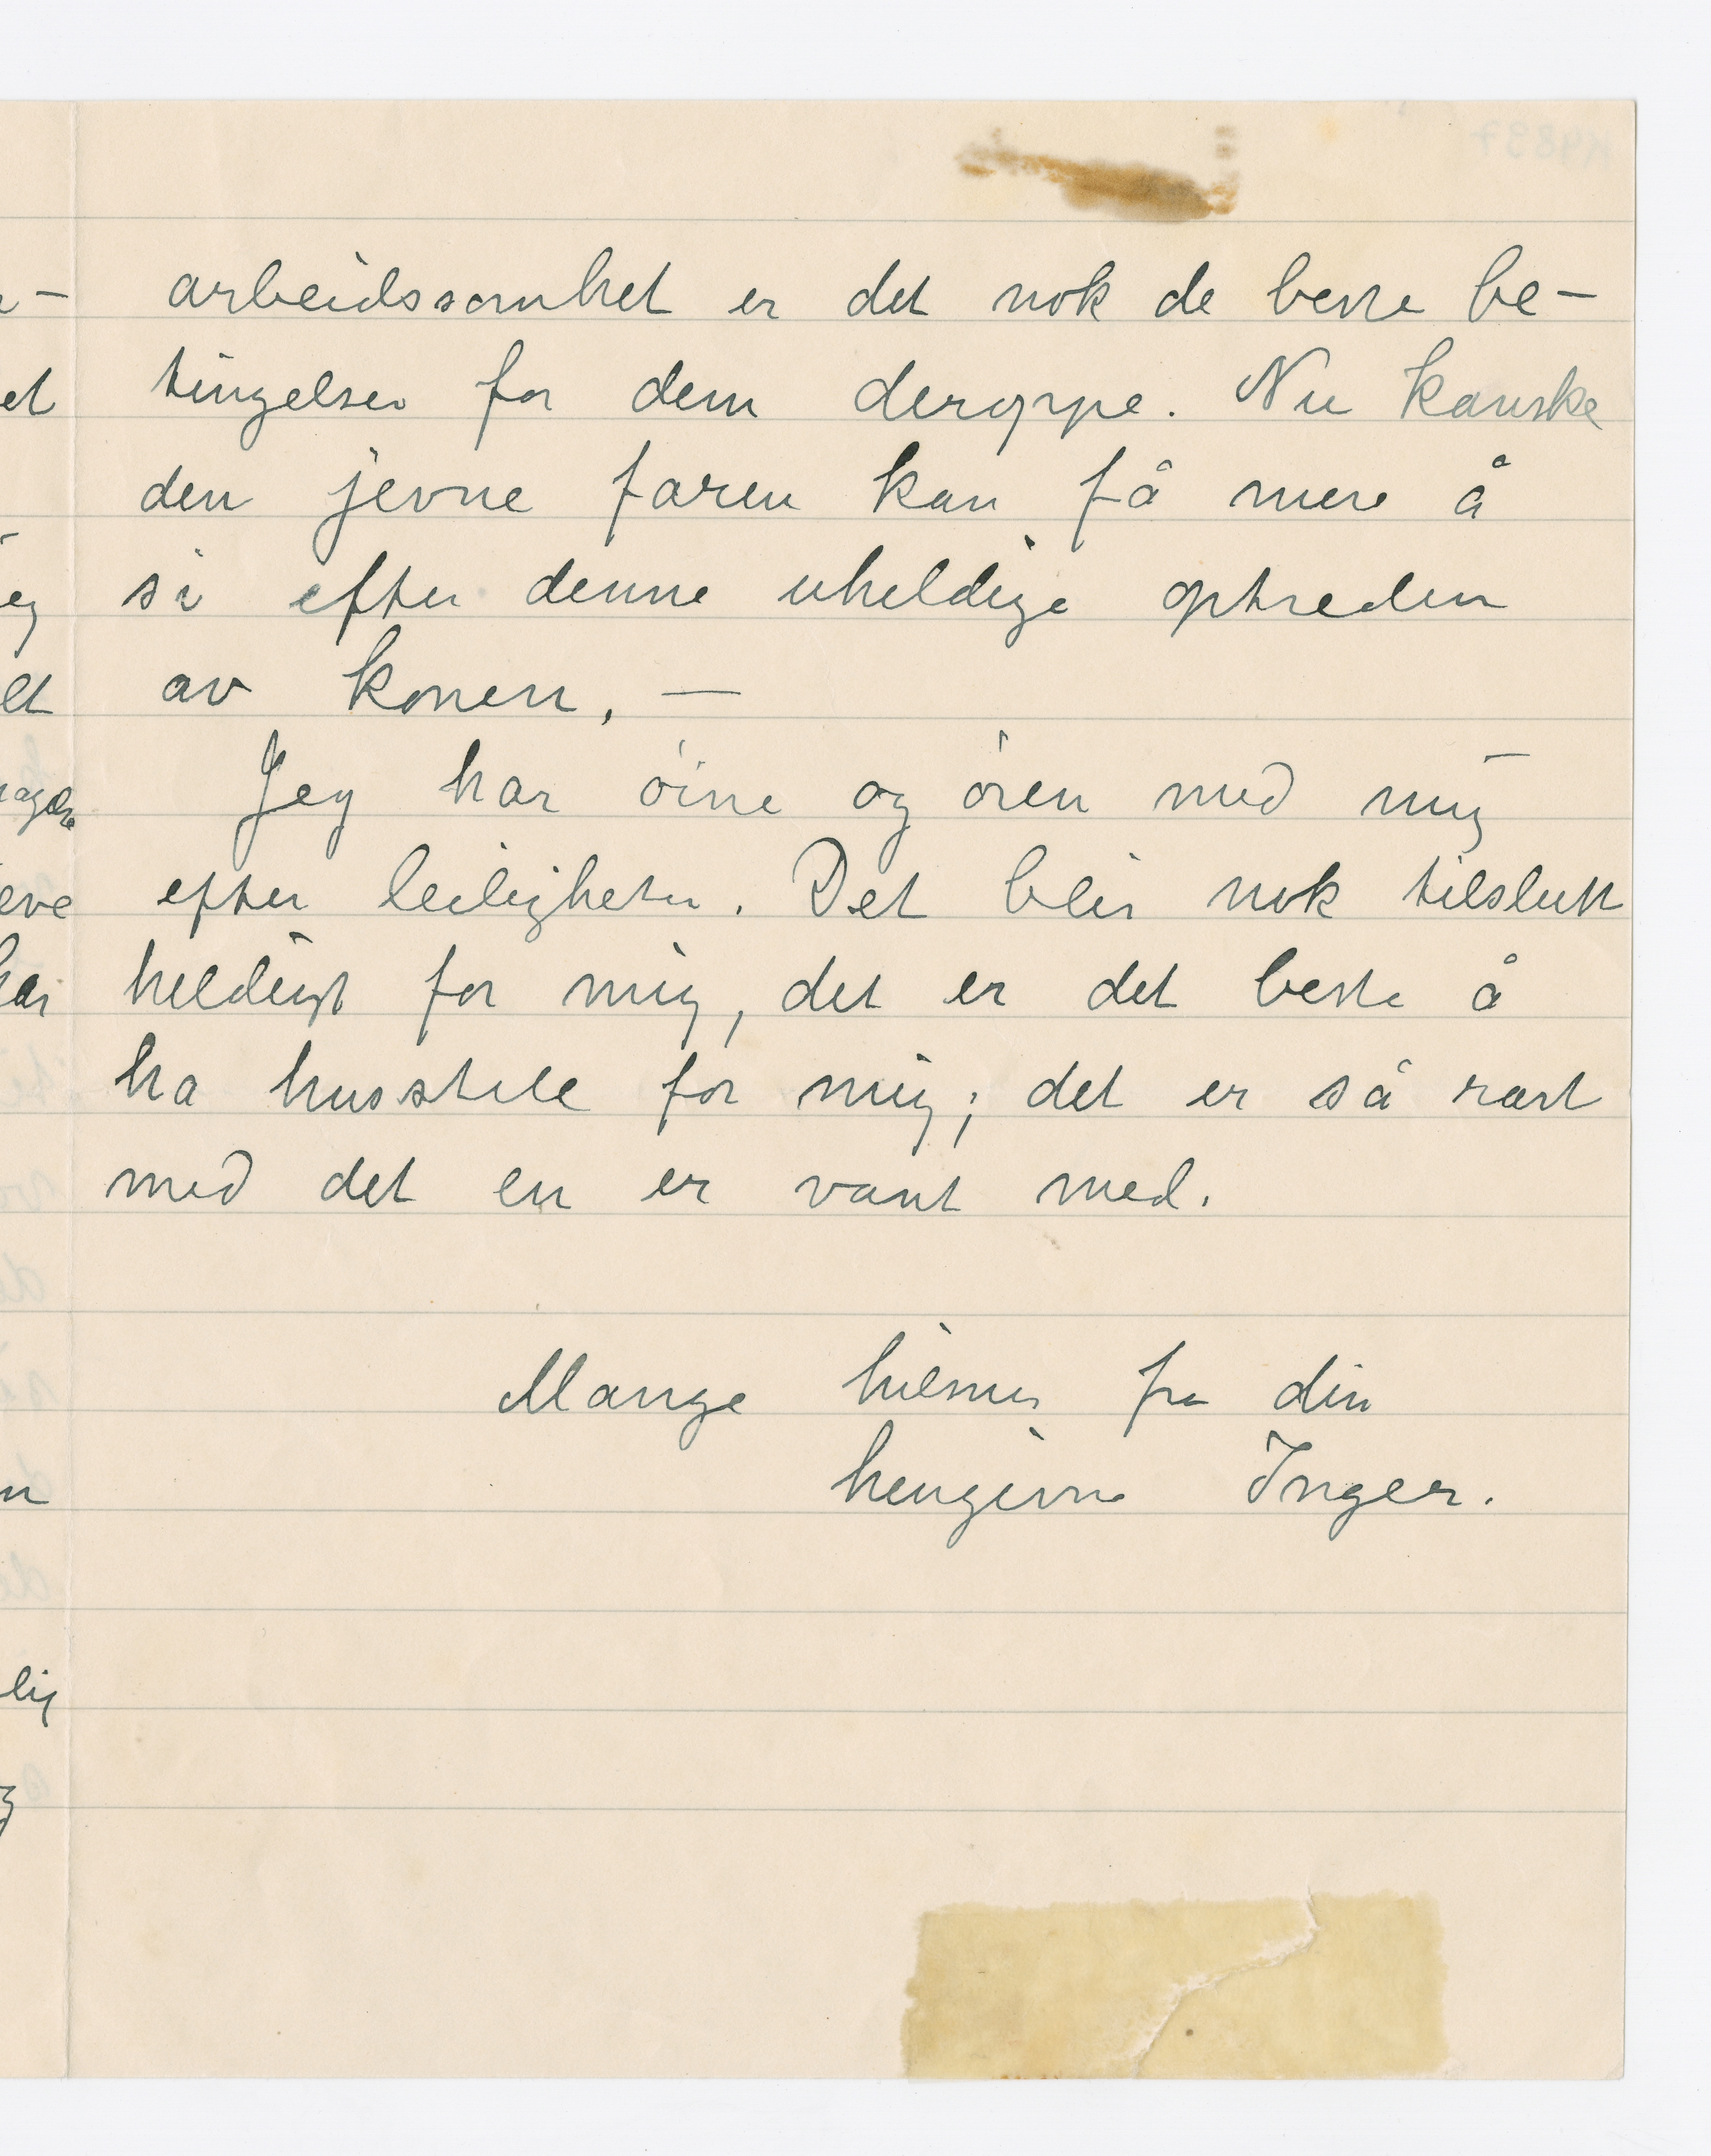 arbeidssomhet er det nok de beste be-
tingelser for dem deroppe. Nu kanske
den jevne faren kan få mere å
si efter denne uheldige optreden
av konen. —
Jey har öine og ören med mig
efter leiligheter. Det blir nok tilslutt
heldigst for mig, det er det beste å
ha husstell for mig; det er så rart
med det en er vant med.
Mange hilsner fra din
hengivne Inger.